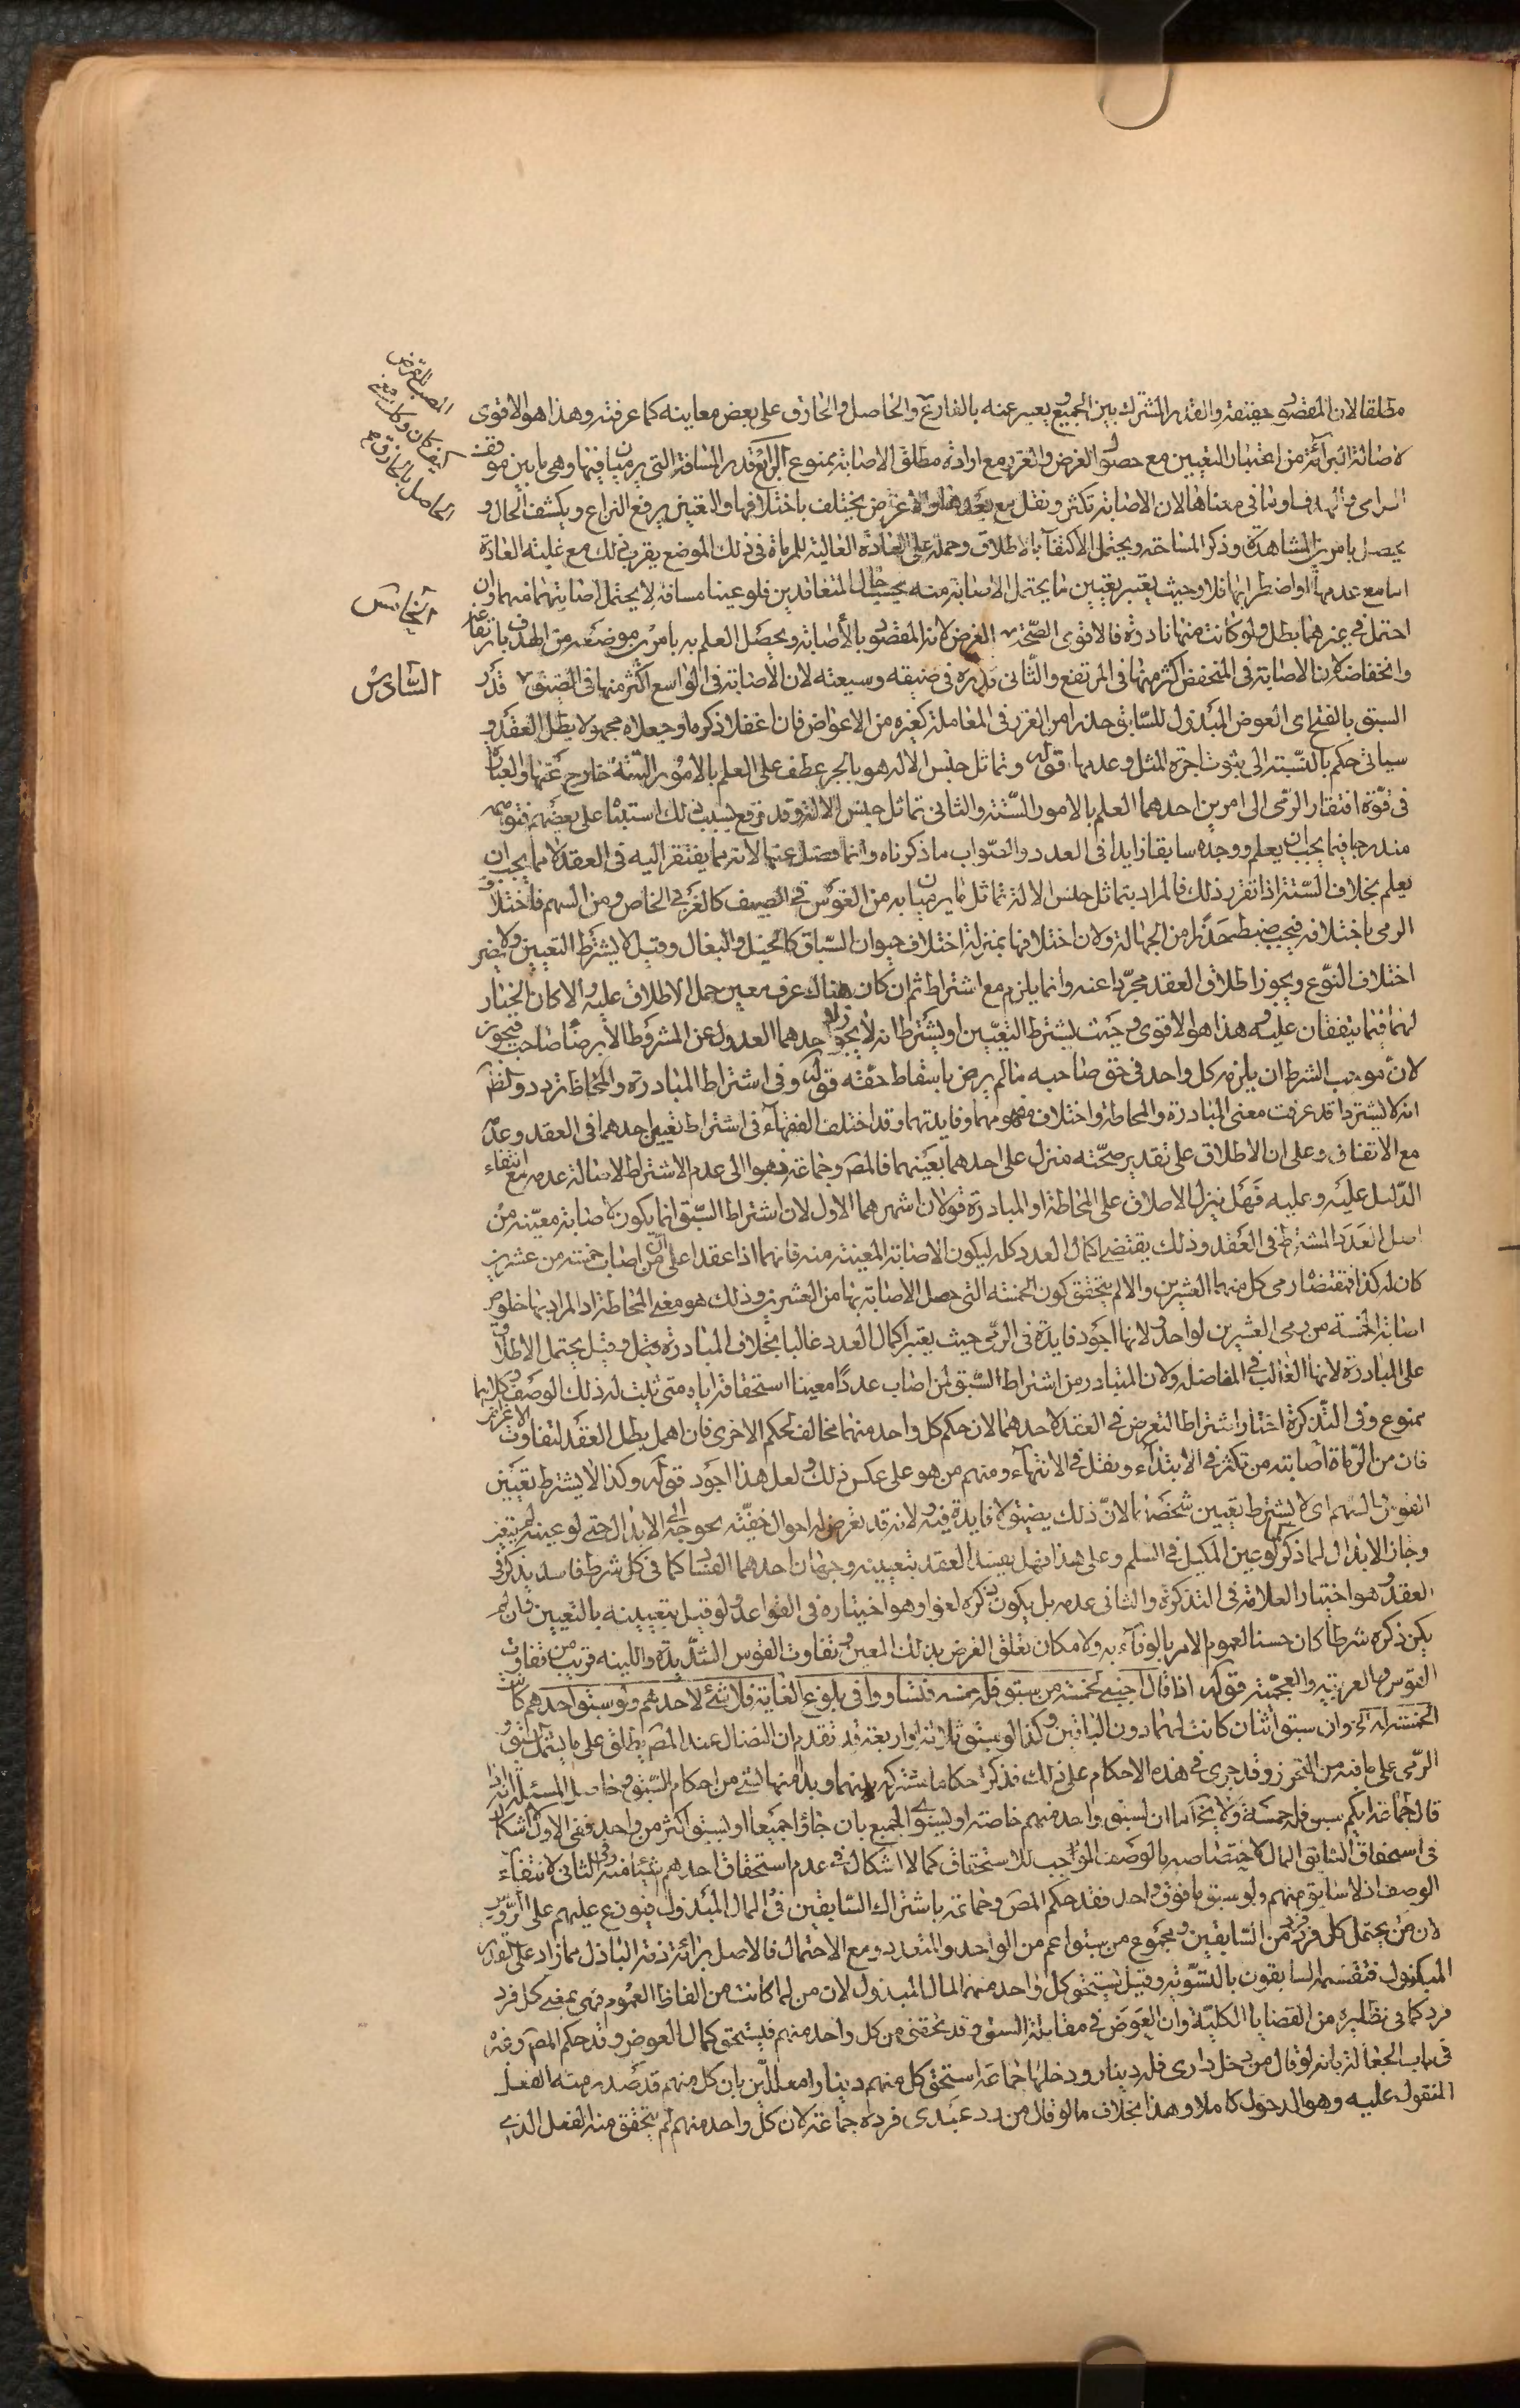 مطلقا لان المقصود حقيقة والقدر المشترك بين الجميع ويعبر عنه بالقارع والخاصل والخارق على بعض معاينه كما عرفته وهذا هو الاقوى
لاصالة البرآئة من اعتبار التعيين مع حصول الغرض والغرر مع ارادة مطلق الاصابة ممنوع الرابع قدر المسافة التى يرميان فيها وهى ما بين موقف
الرامى والهدف وما فى معناها لان الاصابة تكثر وتقل مع بعدها والاغراض يختلف باختلافها والتعيين يرفع النزاع ويكشف الحال و
يحصل بامرين المشاهدة وذكر المساحة ويحتمل الاكتفآ بالاطلاق وحمله على العادة الغالبة للرماة فى ذلك الموضع يقرب ذلك مع غلبة العادة
اما مع عدمها او اضطرابها فلا وحيث يعتبر تعيين ما يحتمل الاصابة منه بحسب حال المتعاقدين فلو عينا مسافة لا يحتمل اصابتهما فيها وان
احتمل فى غيرهما بطل ولو كانت منها نادرة فالاقوى الصحة الغرض لانه المقصود بالاصابة ويحصل العلم به بامرين موضعه من الهدف بارتفاعه
وانخفاضه لان الاصابة فى المنخفض اكثر منها فى المرتفع والثانى قدره فى ضيقه وسعته لان الاصابة فى الواسع اكثر منها فى الضيق قدر
السبق بالفتح اى العوض المبذول للسابق حذرا من الغرر فى المعاملة كغيره من الاعواض فان اغفلا ذكره او جعلاه مجهولا بطل العقد و
سياتى حكم بالنسبة الى ثبوت اجرة المثل وعدمها قوله وتماثل جنس الالة هو بالجر عطف على العلم بالامور الستة خارج عنها والعبارة
فى قوة افتقار الرمى الى امرين احدهما العلم بالامور الستة والثانى تماثل جنس الالة وقد توقع بسبب ذلك اشتباه على بعضهم فتوهمه
مندرجا فيما يجب ان يعلم ووجده سابقا زايدا فى العدد والصواب ما ذكرناه وانما فصل عنها لانه مما يفتقر اليه فى العقد لا مما يجب ان
يعلم بخلاف الستة اذا تقرر ذلك فالمراد بتماثل جنس الالة تماثل ما يرميان به من القوس فى الصنف كالعربى الخاص ومن السهم فاختلاف
الرمى باختلافه فيجب ضبطه حذرا من الجهالة ولان اختلافها بمنزلة اختلاف حيوان السباق كالخيل والبغال وقيل لا يشترط التعيين ولا يضر
اختلاف النوع ويجوز اطلاق العقد مجردا عنه وانما يلزم مع اشتراط ثم ان كان هناك عرف معين حمل الاطلاق عليه والا كان الخيار
لهما فيما يتفقان عليه وهذا هو الاقوى وحيث يشترط التعيين او يشترطانه لا يجوز لاحدهما العدول عن المشروط الا برضا صاحبه فيجوز
لان موجب الشرط ان يلزم كل واحد فى حق صاحبه ما لم يرض باسقاط حقه قوله وفى اشتراط المبادرة والمحاطة تردد والظ
انه لا يشترط قد عرفت معنى المبادرة والمحاطة واختلاف مفهومهما وفايدتهما وقد اختلف الفقهآء فى اشتراط تعيين احدهما فى العقد وعدمه
مع الاتفاق وعلى ان الاطلاق على تقدير صحته منزل على احدهما بعينهما فالمصَ وجماعة ذهبوا الى عدم الاشتراط لاصالة عدمه مع انتفاء
الدليل عليه وعليه فهل ينزل الاطلاق على المحاطة او المبادرة قولان اشهرهما الاول لان اشتراط السبق انما يكون لاصابة معينة من
اصل العدد المشترط فى العقد وذلك يقتضى اكمال العدد كله ليكون الاصابة المعينة منه فانهما اذا عقدا على ان من اصاب خمسة من عشرين
كان له كذا فمقتضاه رمى كل منهما العشرين والا لم يتحقق كون الخمسة التى حصل الاصابة بها من العشرين وذلك هو معنى المحاطة اذ المراد بها خلوص
اصابة الخمسة من رمى العشرين لواحد ولانها اجود فايدة فى الرمى حيث يعتبر اكمال العدد غالبا بخلاف المبادرة فيما وقيل يحتمل الاطلاق
على المبادرة لانها الغالب فى المفاضلة ولان المتبادر من اشتراط السبق لمن اصاب عددا معينا استحقاقه اياه متى ثبت له ذلك الوصف وكلاهما
ممنوع وفى التذكرة اختار اشتراط التعرض فى العقد لاحدهما لان حكم كل واحد منهما مخالف لحكم الاخرى فان اهمل بطل العقد لتفاوت الاغراض
فان من الرماة اصابته من تكثر فى الابتدآء وتقل فى الانتهآء ومنهم من هو على عكس ذلك ولعل هذا اجود قوله وكذا لا يشترط تعيين
القوس والسهم اى لا يشترط تعيين شخصهما لان ذلك يضيق لا فايدة فيه ولانه قد يعرض له احوال خفية يحوجه الى الابدال حتى لو عينه لم يتعين
وجاز الابدال لما ذكر كما لو عين المكيل فى السلم وعلى هذا فهل يفسد العقد بتعيينه وجهان احدهما الفساد كما فى كل شرط فاسد يذكر فى
العقد وهو اختيار العلامة فى التذكرة والثانى عدمه بل يكون ذكره لغوا وهو اختياره فى القواعد ولو قيل بتعيينه بالتعيين فان لم
يكن ذكره شرطا كان حسنا لعموم الامر بالوفآء به ولامكان تعلق الغرض بذلك المعين وتفاوت القوس الشديدة واللينة قريب من تفاوت
القوس العربية والعجمية قوله اذا قال اجنبى لخمسة من سبق فله خمسة فتساووا فى بلوغ الغاية فلا شئ لاحدهم ولو سبق احدهم كانت
الخمسة له الخ وان سبق اثنان كانت لهما دون الباقين وكذا لو سبق ثلاثة او اربعة قد تقدم ان النضال عند المصَ يطلق على ما يشمل السبق و
الرمى على ما فيه من التحرز وقد جرى فى هذه الاحكام على ذلك فذكر احكاما مشتركة بينهما وبدا منها بشئ من احكام السبق وحاصل المسئلة انه اذا
قال لجماعة ايكم سبق فله خمسة فلا يخ اما ان يسبق واحد منهم خاصة او يسبق الجميع بان جاؤا جميعا او يسبق اكثر من واحد ففى الاول لا اشكال
فى استحقاق السابق المال لاختصاصه بالوصف الموجب للاستحقاق كما لا اشكال فى عدم استحقاق احدهم شيئا منه فى الثانى لانتفآء
الوصف اذ لا سابق منهم ولو سبق ما فوق واحد فقد حكم المصَ وجماعة باشتراك السابقين فى المال المبذول فيوزع عليهم على الرؤس
لان من يحتمل كل فرد فرد من السابقين ومجموع من سبق اعم من الواحد والمتعدد ومع الاحتمال فالاصل برائة ذمة الباذل مما زاد على القدر
المبذول فتقسمه السابقون بالتسوية وقيل يستحق كل واحد منهم المال المبذول لان من لما كانت من الفاظ العموم فهى بمعنى كل فرد
فرد كما فى نظايره من القضايا الكلية وان العوض فى مقابلة السبق وقد تحقق من كل واحد منهم فيستحق كمال العوض وقد حكم المصَ وغيره
فى باب الجعالة بانه لو قال من دخل دارى فله دينار ودخلها جماعة استحق كل منهم دينارا معللين بان كل منهم قد صدر منه الفعل
المنقول عليه وهو الدخول كاملا وهذا بخلاف ما لو قال من رد عبدى فرده جماعة لان كل واحد منهم لم يتحقق منه الفعل الذى
كيف كان وكانت معنى
الحاصل بالخارق
الخامس
السادس